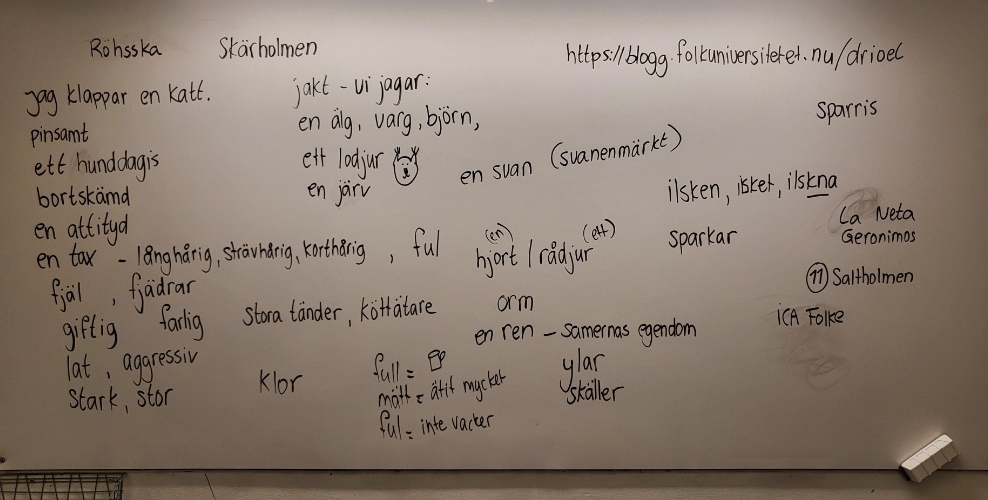 Röhsska Skärholmen
https://blogg.folkuniversitetet.nu/drioel
jag klappar en katt.
pinsamt
ett hunddagis
bortskämd
en attityd
en tax - långhårig, strävhårig, korthårig , ful
fjäl , fjädrar
giftig farlig
lat , aggressiv
stark, stor
jakt - vi jagar:
en älg, varg, björn,
ett lodjur
en järv
en svan (svanenmärkt)
(en) (ett)
hjort / rådjur
stora tänder, köttätare
orm
en ren - samernas egendom
klor
full =
mätt = ätit mycket
ful = inte vacker
ylar
skäller
sparris
ilsken, ilsket, ilskna
sparkar
La Neta
Geronimos
11 Saltholmen
ICA Folke